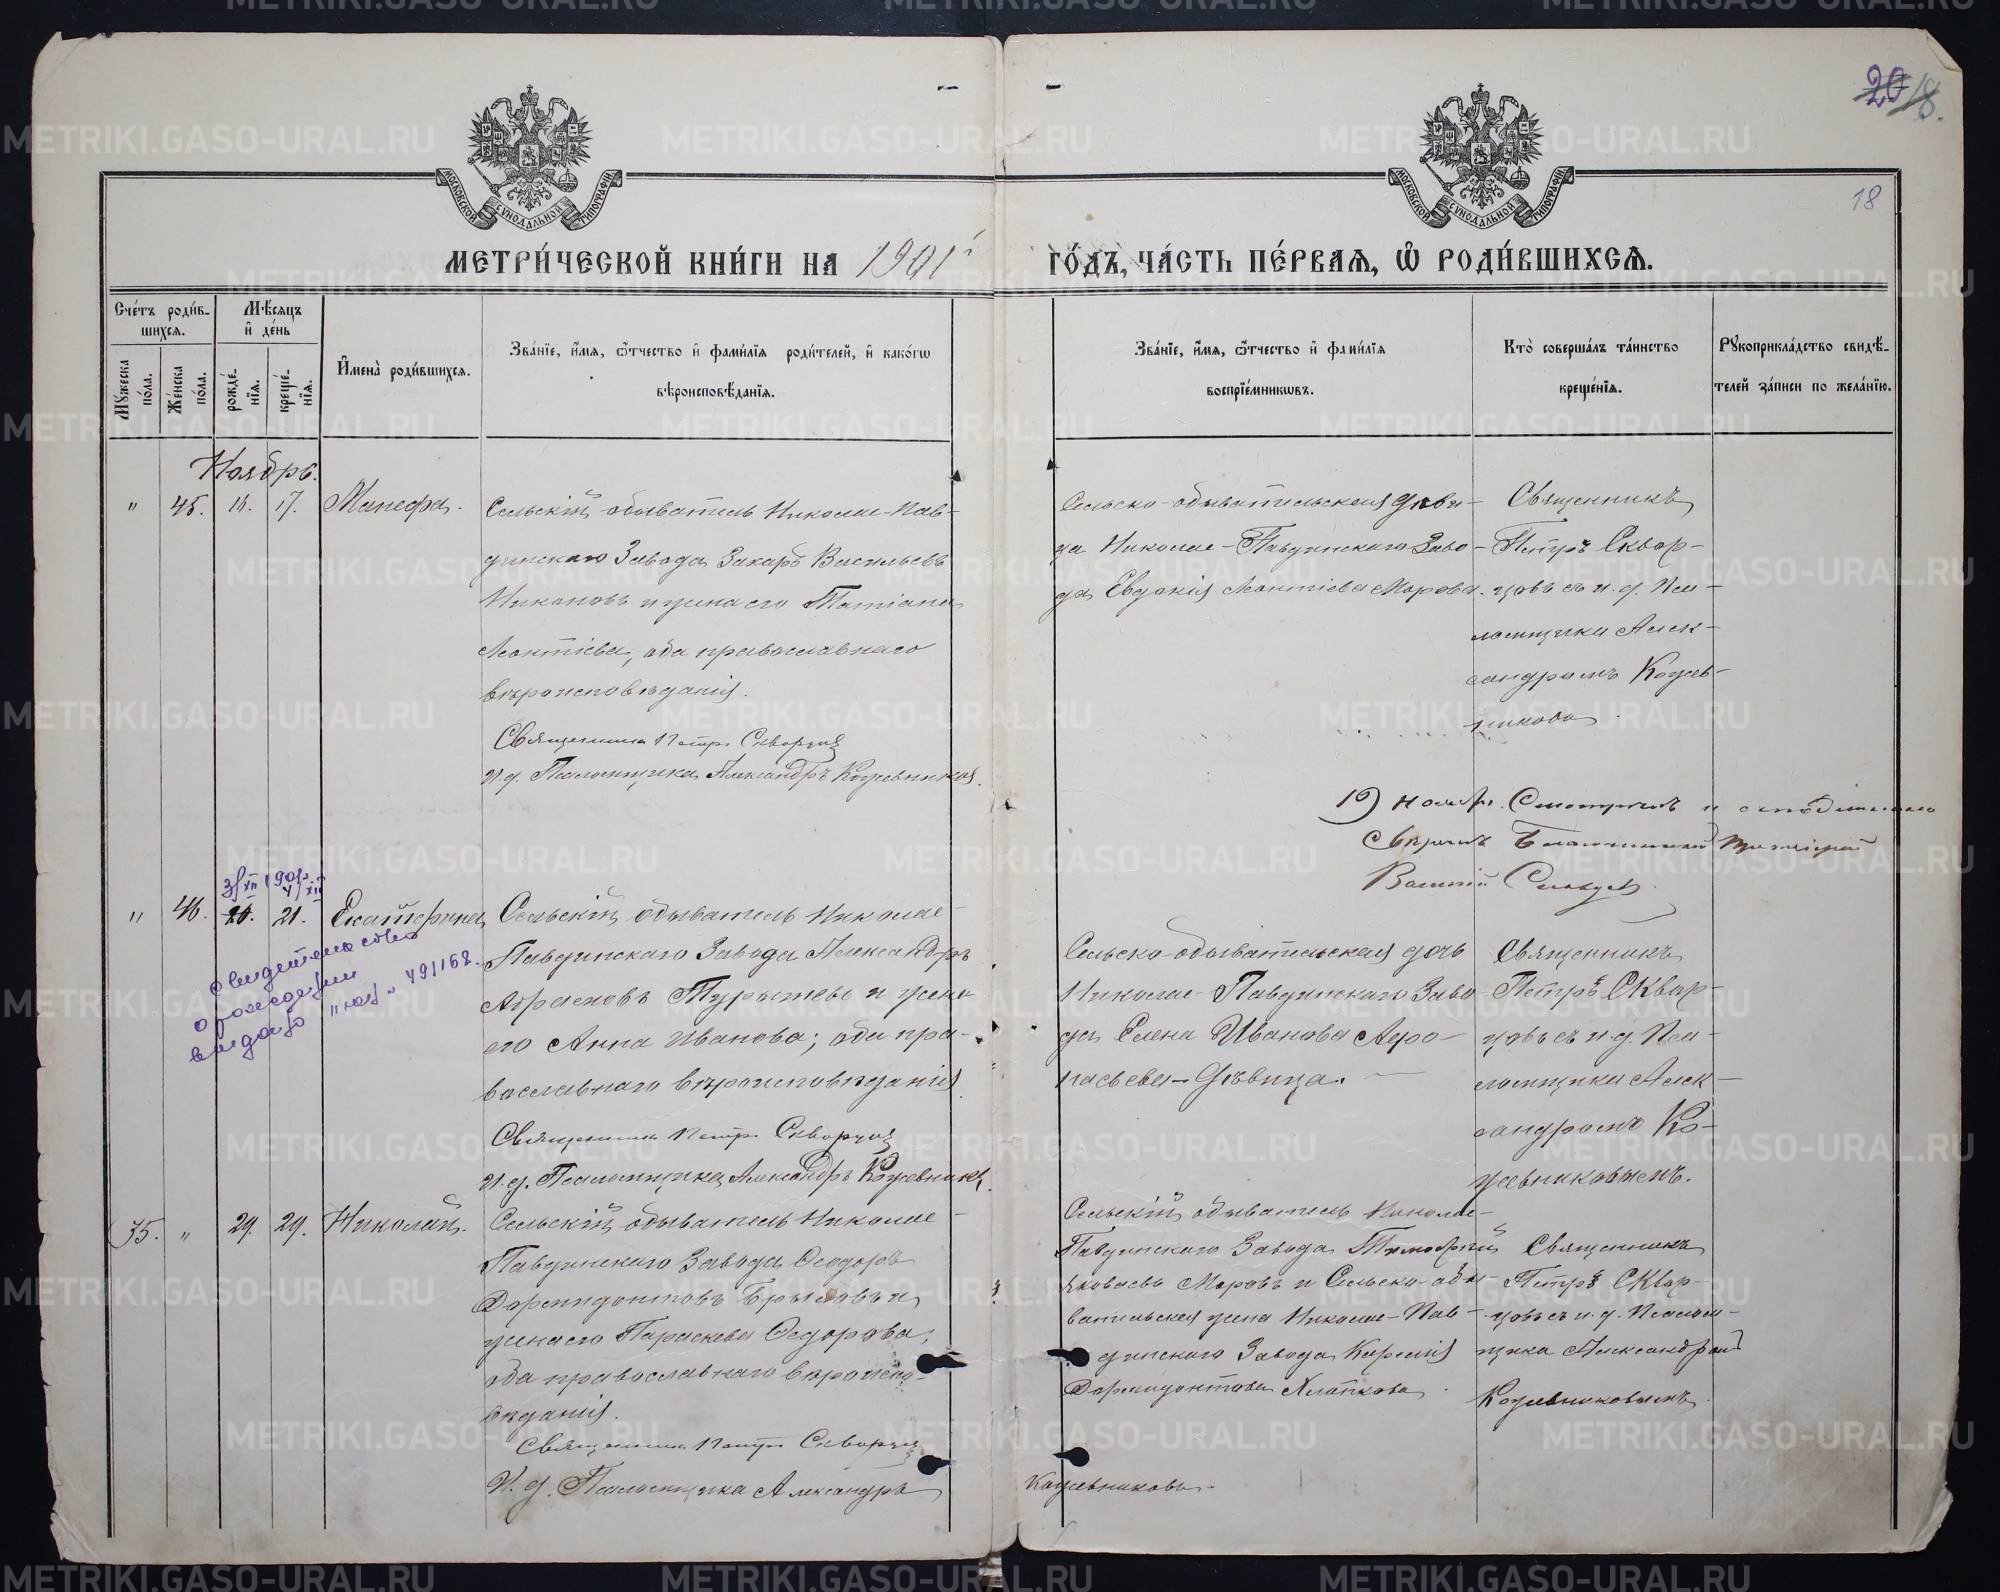 20 18.
18
МОСКОВСКОЙ СУНОДАЛЬНОЙ ТИПОГРАФІИ
МОСКОВСКОЙ СУНОДАЛЬНОЙ ТИПОГРАФІИ
МЕТРИ́ЧЕСКОЙ КНИ́ГИ НА 1901
ГО́ДЪ, ЧА́СТЬ ПЕ́РВАѦ, Ѡ҆ РОДИ́ВШИХСѦ.
Сче́тъ роди́в-
шихсѧ.
Мѣсѧцъ
и҆ де́нь
Мꙋжеска
по́ла.
Же́нска
по́ла.
рожде́-
нїѧ.
креще́-
нїѧ.
И҆мена̀ роди́вшихсѧ.
Зва́нїе, и҆́мѧ, ѻ҆́тчество и҆ фами́лїѧ роди́телей, и҆ како́гѡ
вѣроисповѣ́данїѧ.
Зва́нїе, и҆́мѧ, ѻ҆́тчество и҆ фами́лїѧ
воспрїе́мникѡвъ.
Кто̀ соверша́лъ та́инство
креще́нїѧ.
Рꙋкоприкла́дство свидѣ́-
телей за́писи по жела́нїю.
Ноябрь.
" 45. 16. 17. Манефа.
Сельскій обыватель Николае-Пав-
динскаго Завода Захаръ Васильевъ
Никоновъ и жена его Татіана
Леонтіева, оба православнаго
вѣроисповѣданія.
Священникъ Петръ Скворцовъ
И. д. Псаломщика Александръ Кожевниковъ.
Сельско-обывательская дѣви-
ца Николае-Павдинскаго Заво-
да Евдокія Леонтіева Морова.
Священникъ
Петръ Сквор-
цовъ съ и. д. Пса-
ломщика Алек-
сандромъ Кожев-
никовы
19 Ноябр. Смотрѣлъ и
свѣрялъ Благочинный
Василій
3/XII 1901. 4/XII
" 46. 20. 21. Екатерина
свидетельство
о рождении
выдано "юа" 491168.
Сельскій обыватель Николае-
Павдинскаго Завода Александръ
Абрамовъ Турышевъ и жена
его Анна Иванова; оба пра-
вославнаго вѣроисповѣданія
Священникъ Петръ Скворцовъ
И. д. Псаломщика Александръ Кожевник
Сельско-обывательская дочь
Николае-Павдинскаго Заво
да Елена Иванова Афо-
насьева-дѣвица.
Священникъ
Петръ Сквор-
цовъ съ и. д. Пса-
ломщика Алек-
сандромъ Ко-
жевниковымъ.
35. " 29. 29. Николай.
Сельскій обыватель Николае-
Павдинскаго Завода Ѳеодоръ
Дормидонтовъ Брысовъ и
жена его Параскева Ѳедорова,
оба православнаго вѣроиспо-
вѣданія.
Священникъ Петръ Скворцовъ
И. д. Псаломщика Александръ
Кожевниковъ.
Сельскій обыватель Николае-
Павдинскаго Завода Тимофей
Яковлевъ Моровъ и Сельско-обы-
вательская жена Николае-Пав-
динскаго Завода
Дормидонтова Хлопкова.
Священникъ
Петръ Сквор-
цовъ съ и. д. Псалом-
щика Александромъ
Кожевниковымъ.
METRIKI.GASO-URAL.RU